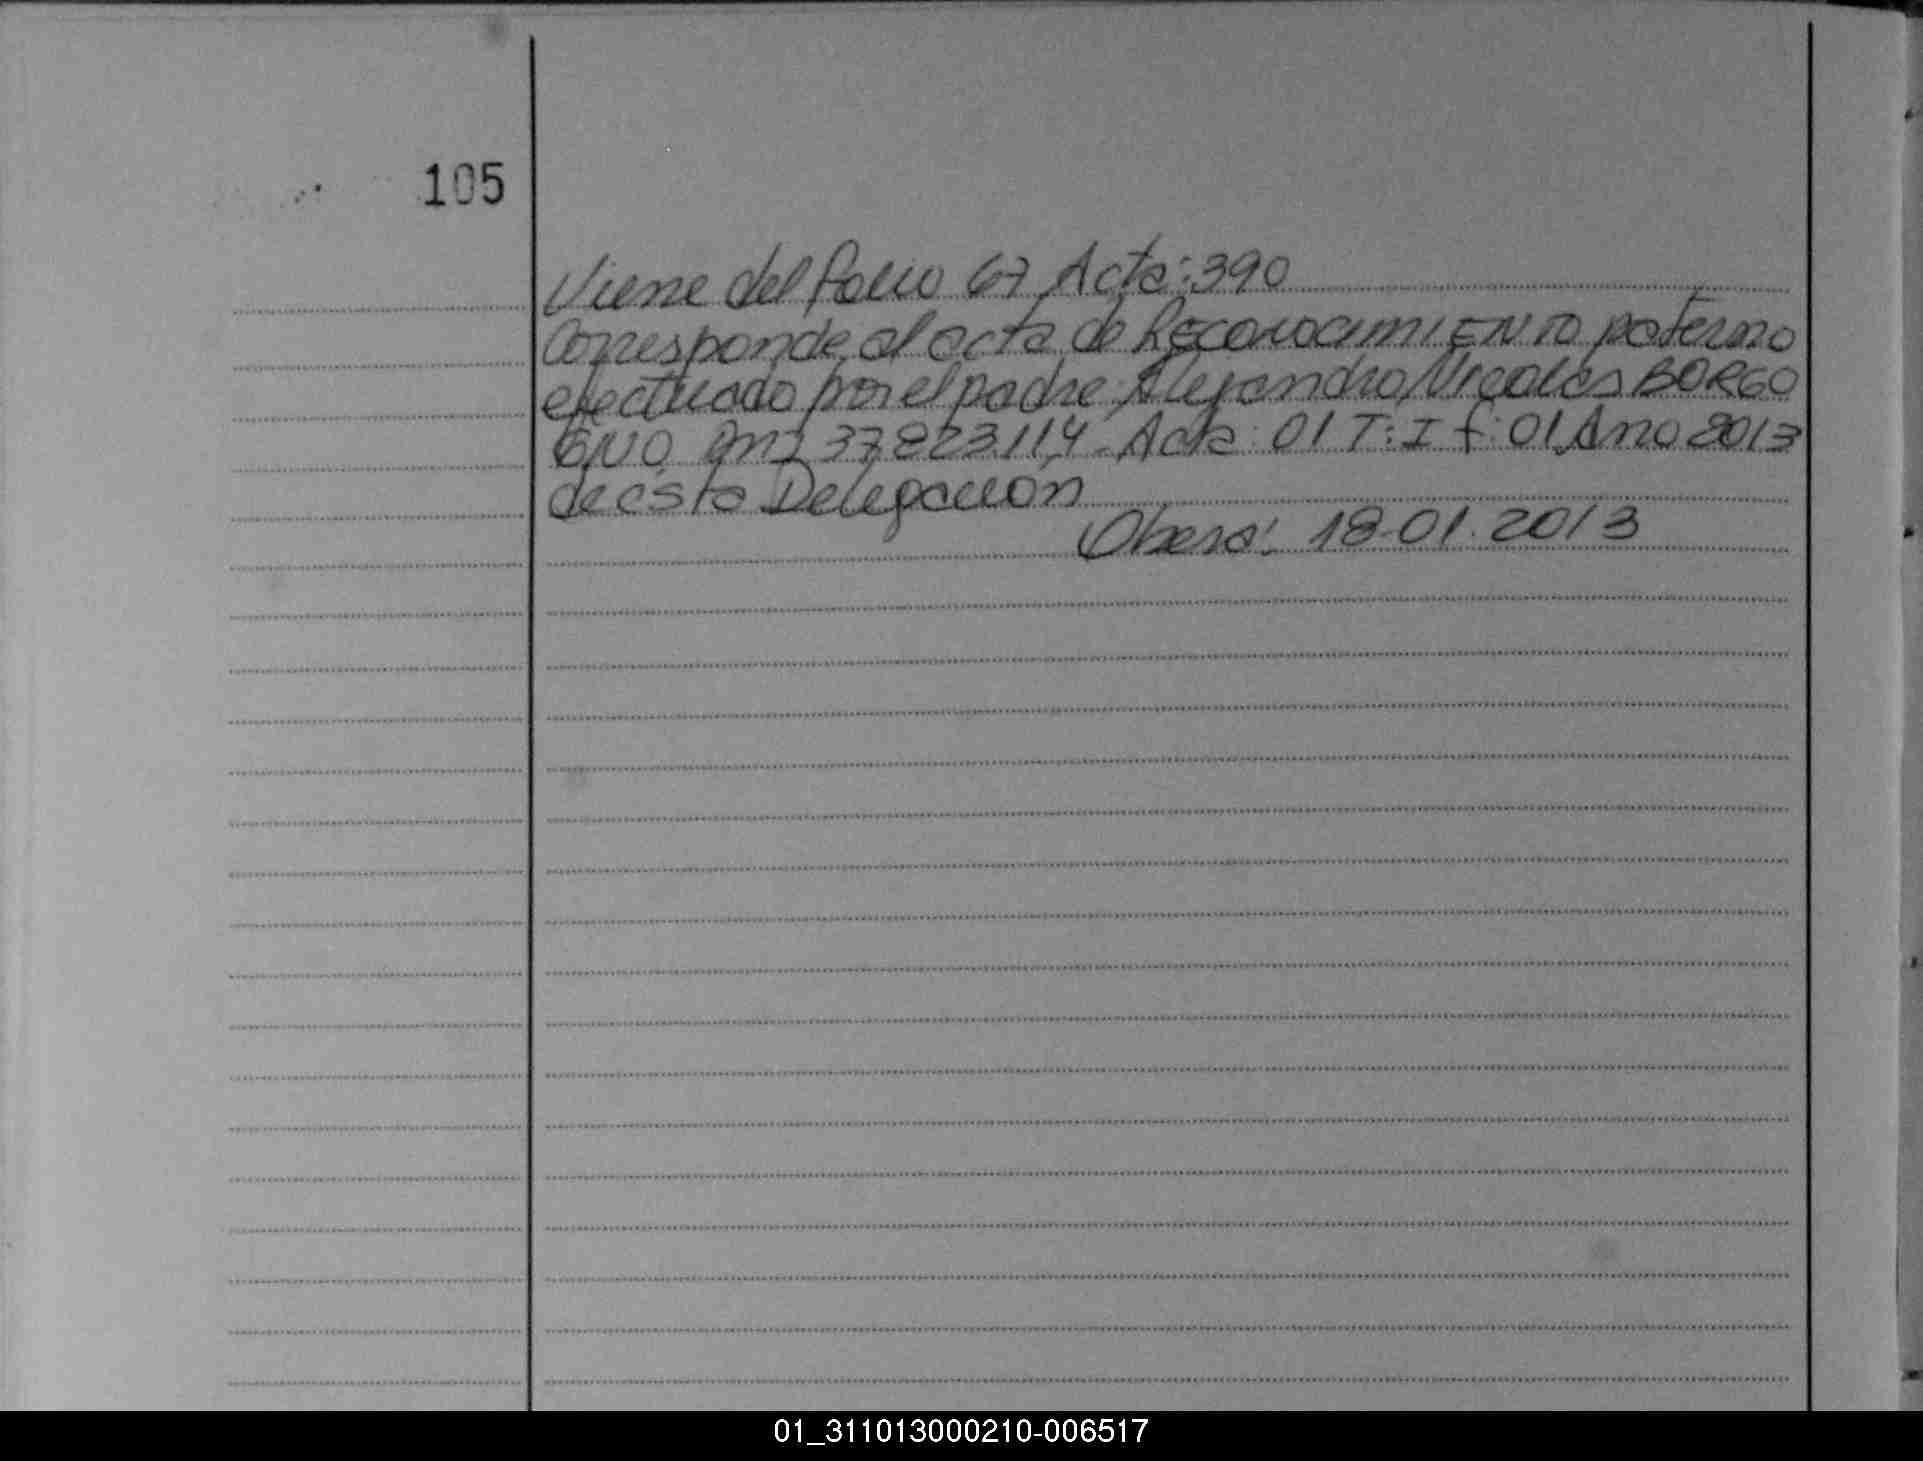 105
Viene del folio 67 Acta: 390
Corresponde al acta de RECONOCIMIENTO paterno
efectuado por el padre: Alejandro Nicolas BORGO
GNO DNI 37.823.114 - Acta: 01 T: I f: 01 Año 2013
de esta Delegación
Oberá: 18-01.2013
01_311013000210-006517